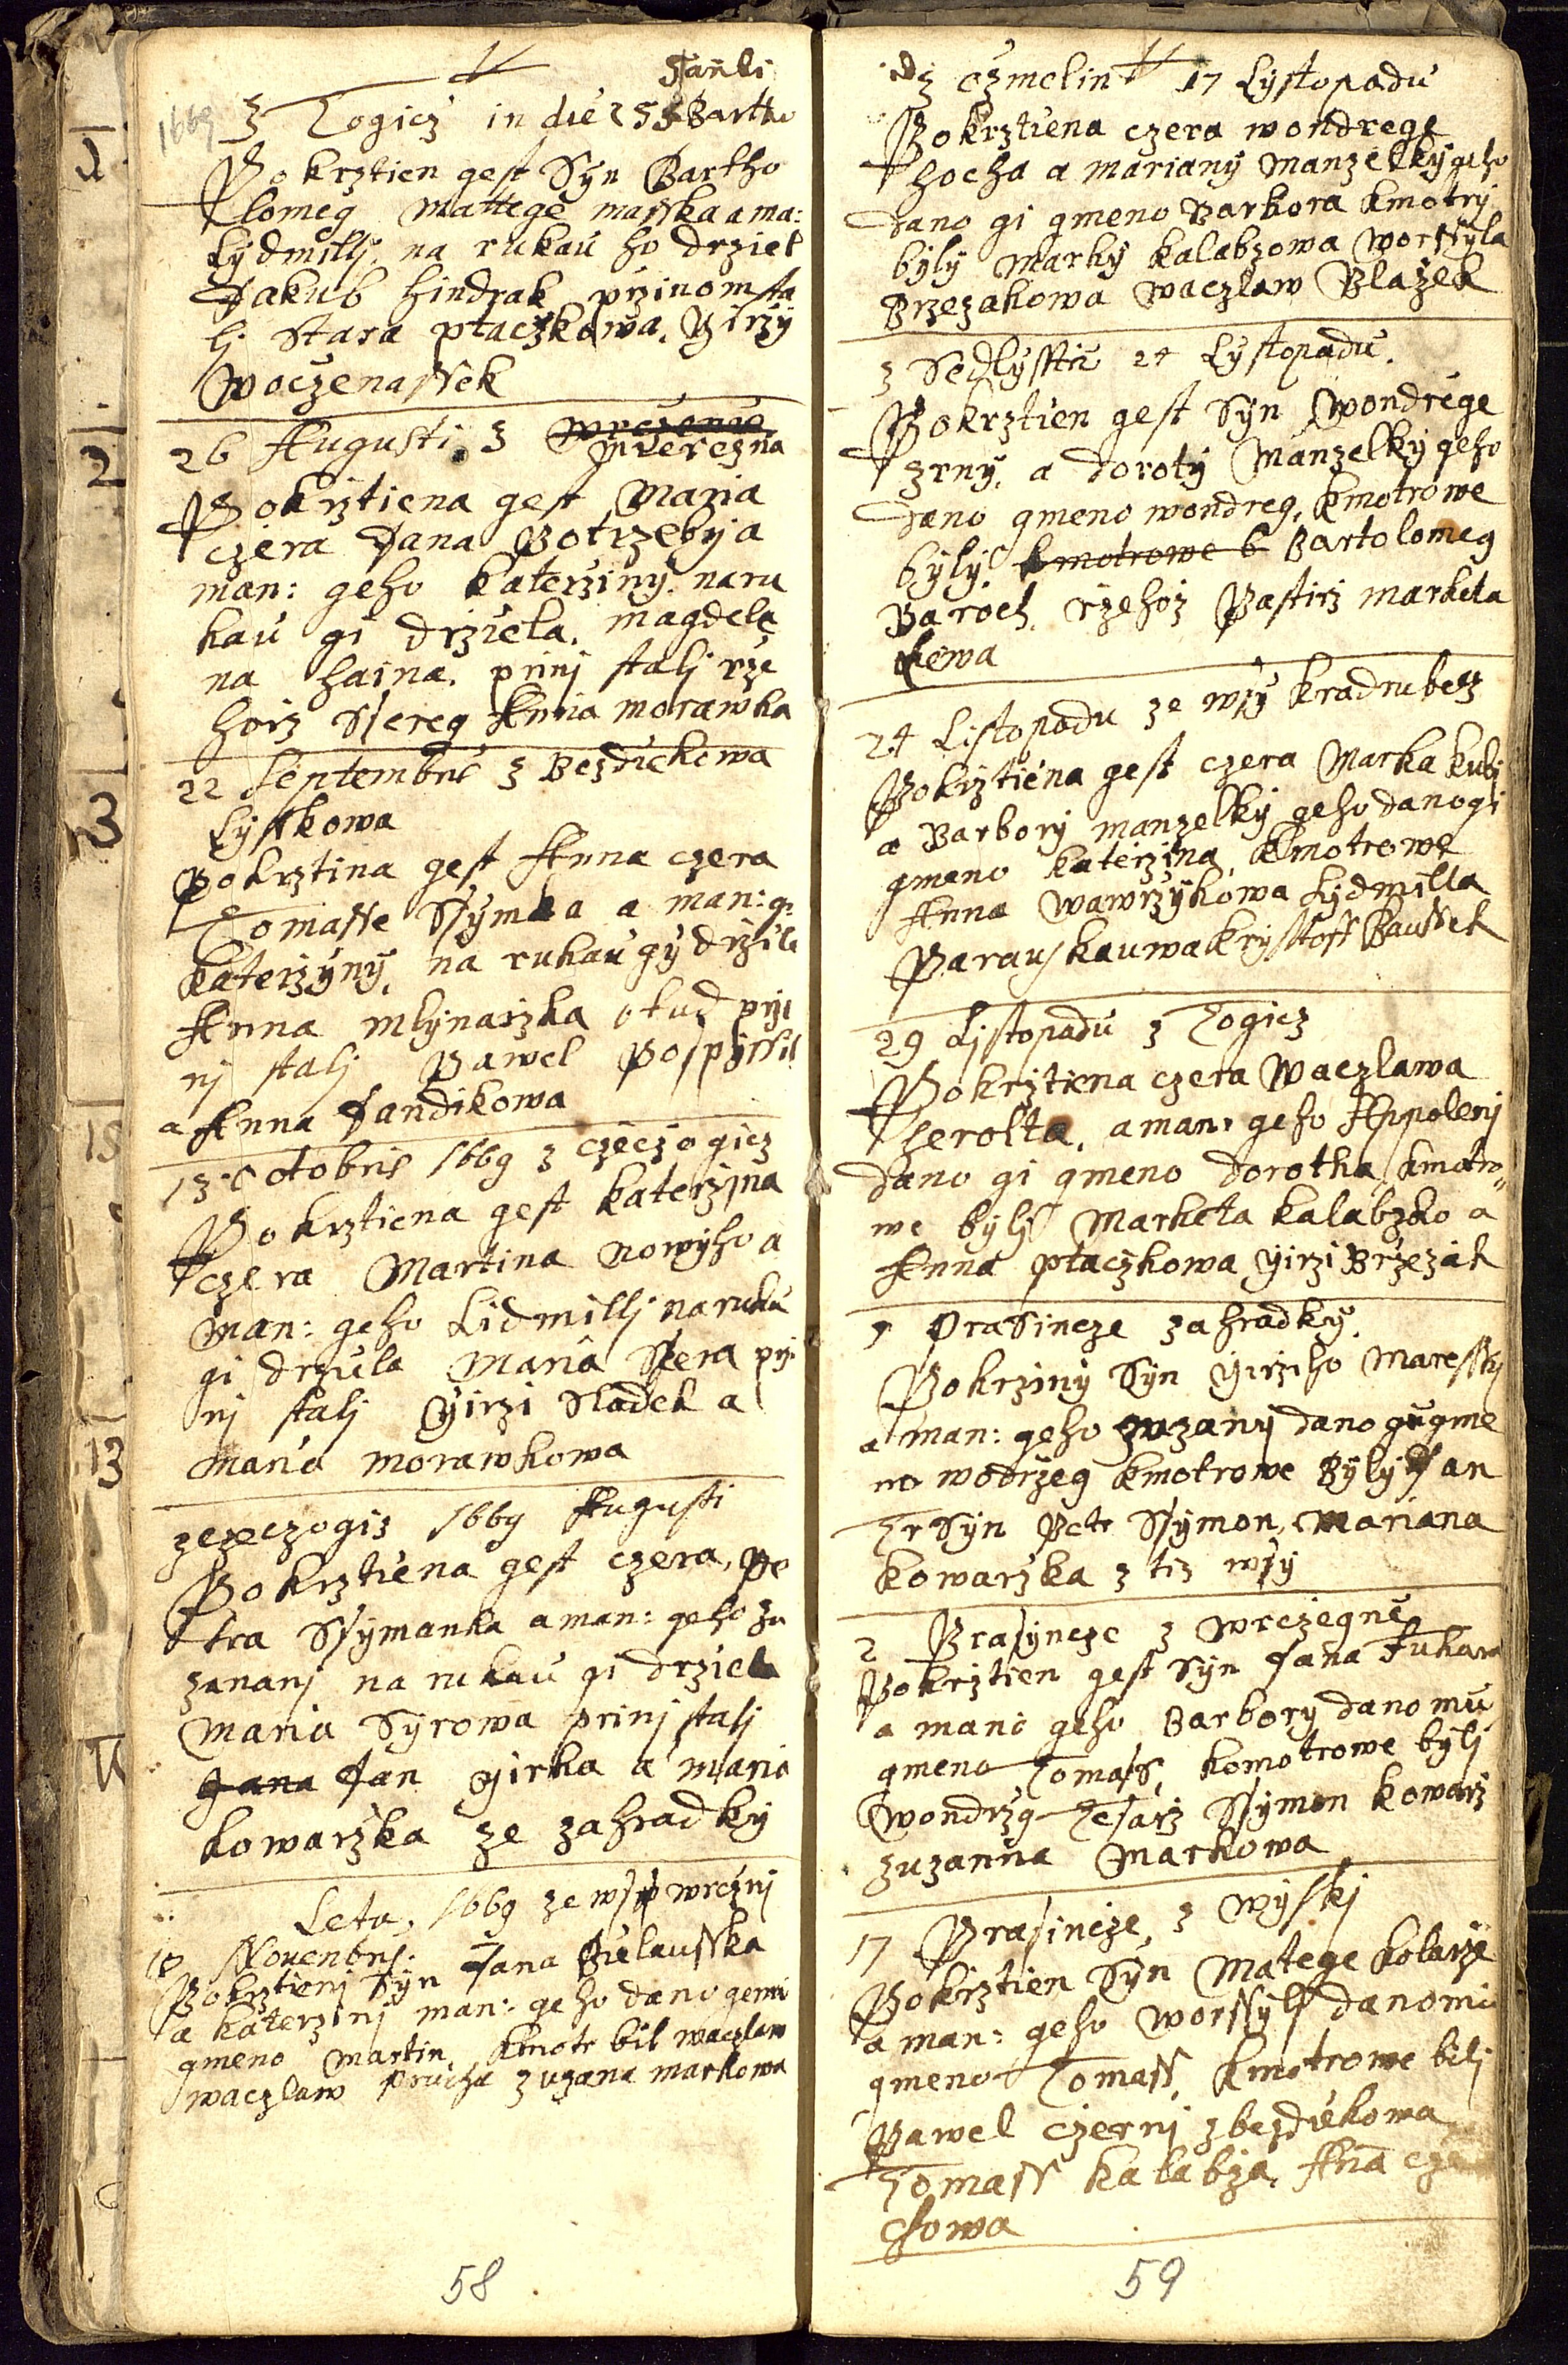 1669
Stanli
z Togicz in die SS Bartho
Pokrztien gest Syn Bartho
lomeg Mattege masska a ma:
Lydmillj. na rukau ho drziel
Jakub hindrak przinom sta
lj Stara ptaczkowa. Girzy
Woczenassek
26 Augusti z Wierezna
Pokrztiena gest Maria
czera Jana Potrzeby a
man: geho Katerziny. na ru
kau gi drziela. magdele
na haina. prinj stalj rze
horz Sereg Anna morawka
22 Septembris z Bezdiekowa
Lysskowa
Pokrztina gest Anna czera
Tomasse Ssymka a man: g:
Katerzyny. na rukau gy drzila
Anna mlynarzka otud pri
nj stalj Pawel Pospyssil
a Anna Jandikowa
13 Octobris 1669 z czeczogicz
Pokrztiena gest katerzina
czera Martina nowyho a
man: geho Lidmillj na ruku
gi drzula Maria Sera pri
nj stalj Girzi Sladek a
Maria morawkowa
zexczogiz 1669 Augusti
Pokrztiena gest czera, Pe
tra Ssymanka a man: geho zu
zananj na rukau gi drziela
Maria Syrowa prinj stalj
Jana Jan girka a Maria
kowarzka ze zahradky
Leta, 1669 ze wsy wreznj
18 Nouenbris
Pokrztienj Syn Jana Sulausska
a katerzinj man: geho dano gemu
gmeno Martin kmotr bil waczlaw
waczlaw Prucha zuzana markowa
58
z ozmelin 17 Lystopadu
Pokrztiena czera wondrege
hocha a mariany manzelky geho
dano gi gmeno Barbora kmotry
byly Marky kalabzowa worssyla
Brzezakowa waczlaw Blazek
z Sedlysstie 24 Lystopadu.
Pokrztien gest Syn wondrege
zrny. a doroty Manzelky geho
dano gmeno wondreg. kmotrowe
byly kmotrowe b Bartolomeg
Baroch rzehoz Pastirz marketa
Lewa
24 Listopadu ze wsy kradrubecz
Pokrztiena gest czera Marka kubj
a Barbory manzelky geho dano gi
gmeno katerzina kmotrowe
Anna wawrzykowa Lydmilla
Parauskauwa krysstoff Baussek
29 Listopadu z Togicz
Pokrztiena czera waczlawa
herolta. a man: geho Appolenj
dano gi gmeno dorotha kmotro
we bylj Marketa kalabzko a
Anna ptaczkowa yirzi Brzezak
9 Prasincze zahradky.
Pokrziny Syn Girziho Maressky
a man: geho zuzany dano gu gme
no wodrzeg kmotrowe Byly Jan
TrSyn Petr Ssymon, Mariana
kowarzka z tiz wsy
2 Prasyncze z wrezegne
Pokrztien gest Syn Jana Fukara
a mano geho Barbory dano mu
gmeno Tomass komotrowe bylj
wondrzg Tesarz Ssymon kowarz
zuzanna Markowa
17 Prasincze, z wyskj
Pokrztien Syn Matege kolarze
a man: geho worssyly dano mu
gmeno Tomass kmotrowe bilj
Pawel czernj z bezdiekowa
Tomass kalabza, Ana cze
chowa
59